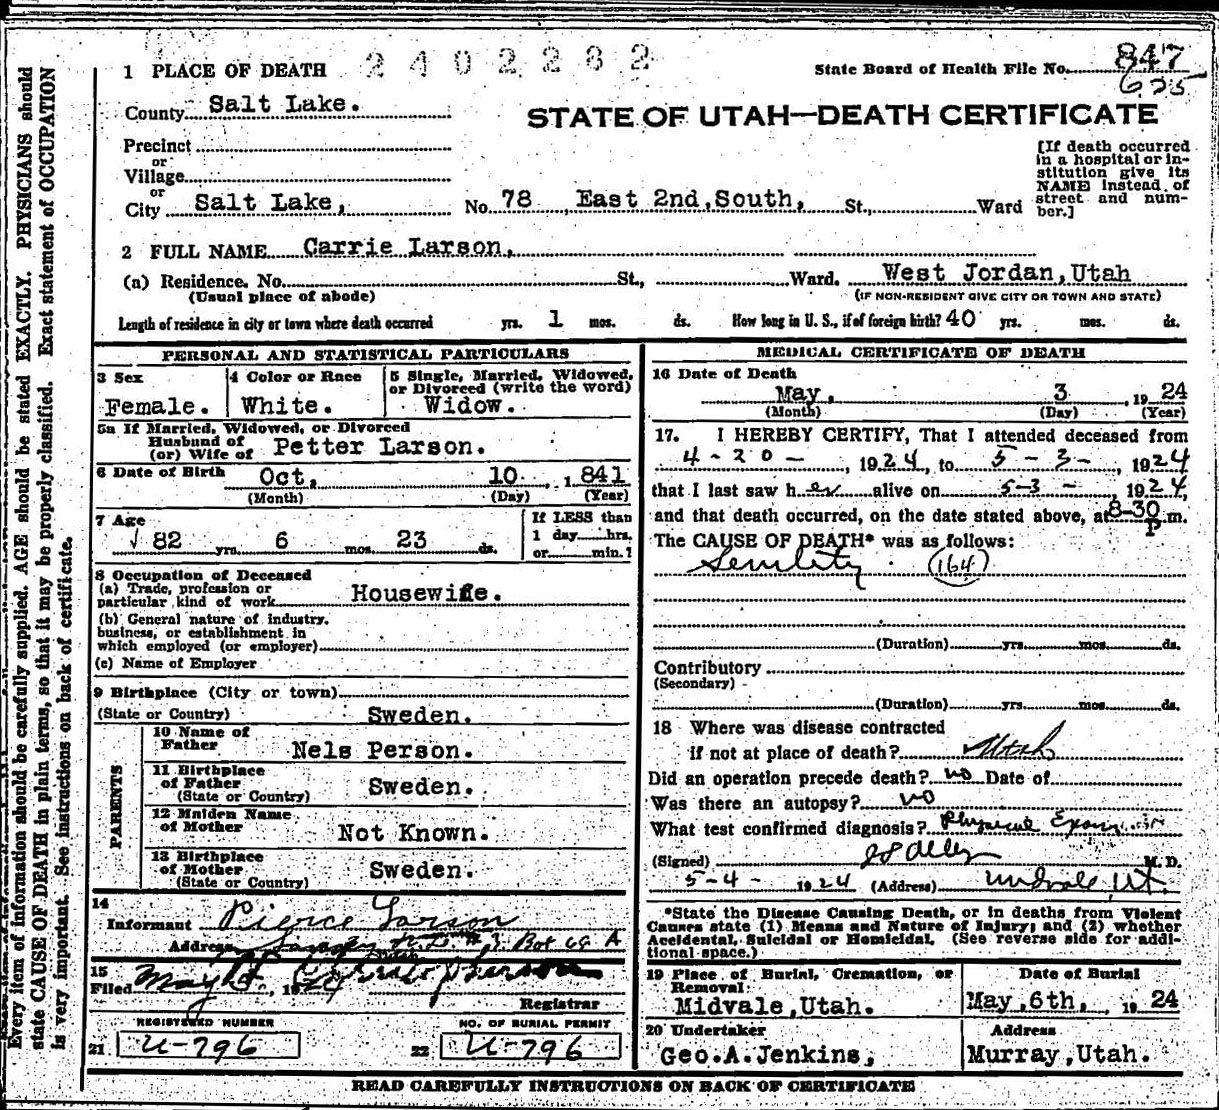 2402262
1 PLACE OF DEATH
State Board of Health File No. 847
625
County Salt Lake.
STATE OF UTAH—DEATH CERTIFICATE
Precinct
or
Village
or
City Salt Lake, No. 78 East 2nd, South, St., Ward
[If death occurred
in a hospital or in-
stitution give its
NAME instead of
street and num-
ber.]
2 FULL NAME Carrie Larson,
(a) Residence. No. St., Ward. West Jordan, Utah
(Usual place of abode) (IF NON-RESIDENT GIVE CITY OR TOWN AND STATE)
Length of residence in city or town where death occurred yrs. 1 mos. ds. How long in U. S., if of foreign birth? 40 yrs. mos. ds.
PERSONAL AND STATISTICAL PARTICULARS
3 Sex
Female.
4 Color or Race
White.
5 Single, Married, Widowed,
or Divorced (write the word)
Widow.
5a If Married, Widowed, or Divorced
Husband of
(or) Wife of Petter Larson.
6 Date of Birth Oct, 10, 1841
(Month) (Day) (Year)
7 Age
82 yrs. 6 mos. 23 ds.
If LESS than
1 day hrs.
or min.?
8 Occupation of Deceased
(a) Trade, profession or
particular kind of work Housewife.
(b) General nature of industry,
business, or establishment in
which employed (or employer)
(c) Name of Employer
9 Birthplace (City or town)
(State or Country) Sweden.
PARENTS
10 Name of
Father Nels Person.
11 Birthplace
of Father Sweden.
(State or Country)
12 Maiden Name
of Mother Not Known.
13 Birthplace
of Mother Sweden.
(State or Country)
14
Informant Pierce Larson
Address Box 69 A
15
Filed May 19 24
Registrar
REGISTERED NUMBER
21 U-796
NO. OF BURIAL PERMIT
22 U-796
MEDICAL CERTIFICATE OF DEATH
16 Date of Death
May, 3, 1924
(Month) (Day) (Year)
17. I HEREBY CERTIFY, That I attended deceased from
4-20-, 1924, to 5-3-, 1924
that I last saw her alive on 5-3-, 1924,
and that death occurred, on the date stated above, at 8-30 P m.
The CAUSE OF DEATH* was as follows:
Senility (164)
(Duration) yrs. mos. ds.
Contributory
(Secondary)
(Duration) yrs. mos. ds.
18 Where was disease contracted
if not at place of death? Utah
Did an operation precede death? no Date of
Was there an autopsy? no
What test confirmed diagnosis? Physical Exam
(Signed) M. D.
5-4-1924 (Address) Midvale Ut.
*State the Disease Causing Death, or in deaths from Violent
Causes state (1) Means and Nature of Injury; and (2) whether
Accidental, Suicidal or Homicidal. (See reverse side for addi-
tional space.)
19 Place of Burial, Cremation, or
Removal:
Midvale, Utah.
Date of Burial
May, 6th, 1924
20 Undertaker
Geo. A. Jenkins,
Address
Murray, Utah.
READ CAREFULLY INSTRUCTIONS ON BACK OF CERTIFICATE
Every item of information should be carefully supplied. AGE should be stated EXACTLY. PHYSICIANS should
state CAUSE OF DEATH in plain terms, so that it may be properly classified. Exact statement of OCCUPATION
is very important. See instructions on back of certificate.